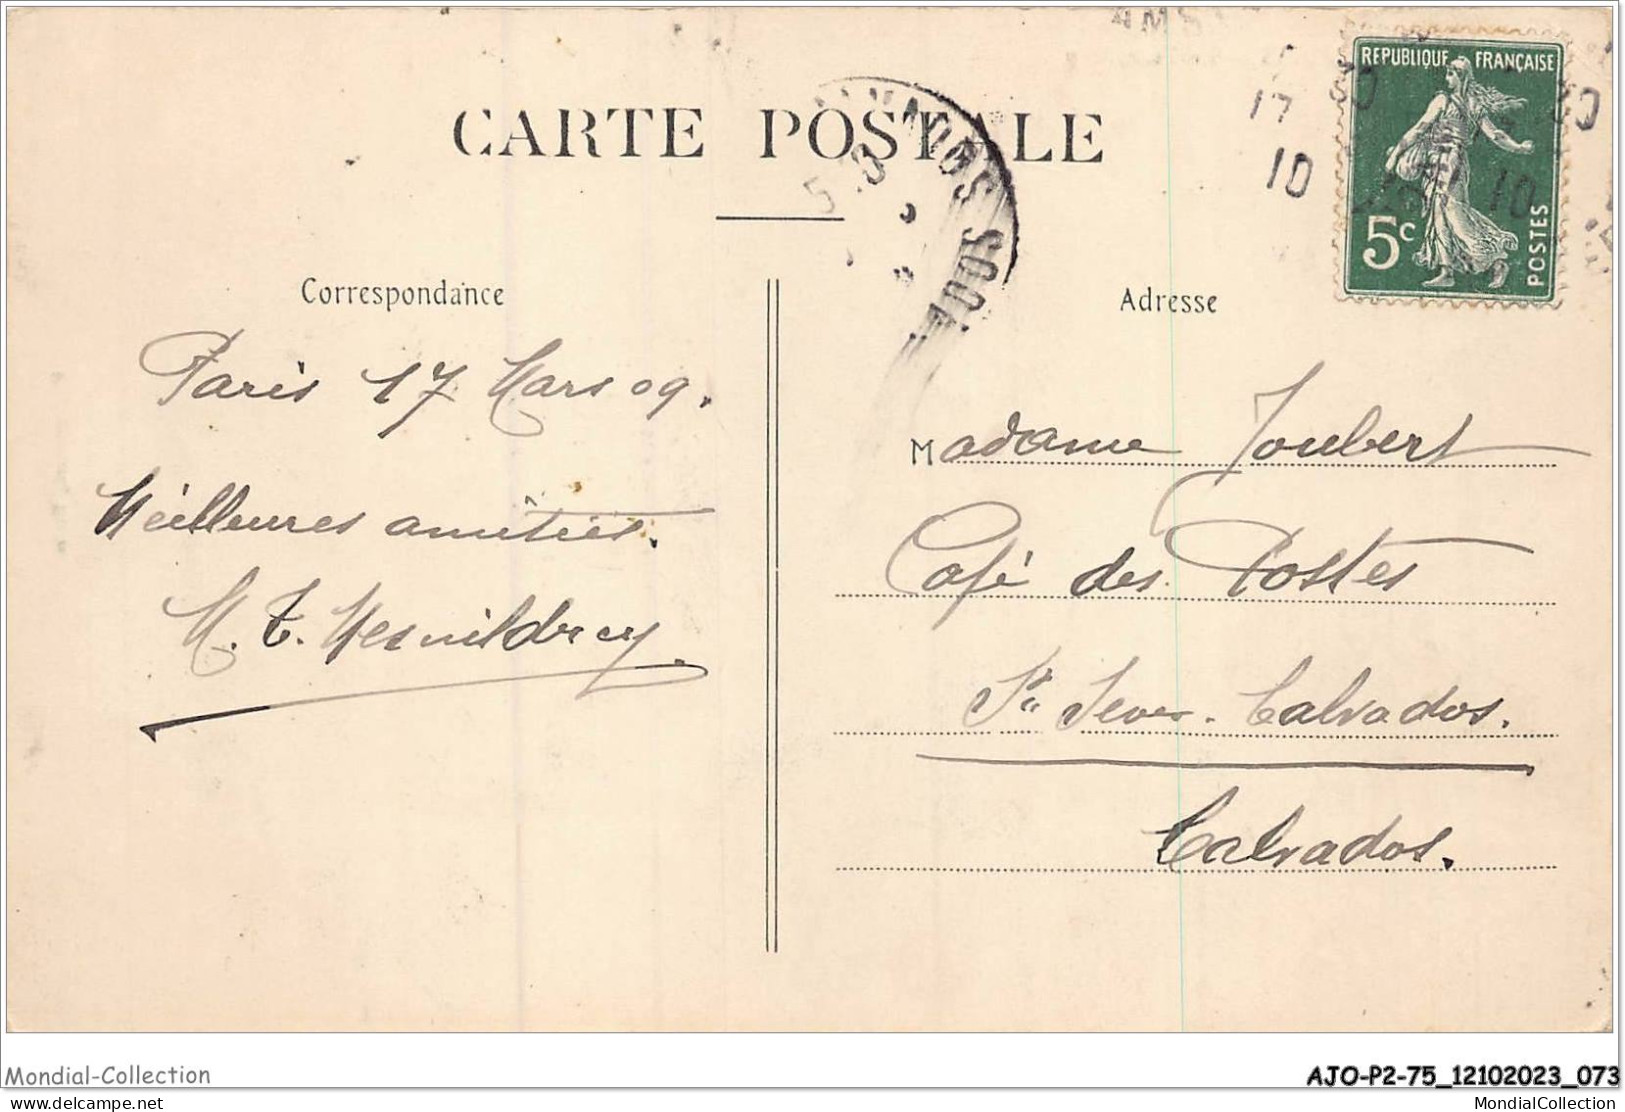 CARTE POSTALE
REPUBLIQUE FRANÇAISE
5c
POSTES
17 30
10 10
Correspondance
Adresse
Paris 17 Mars 09.
Meilleures amitiés.
M. T. Mesnildrey.
Madame Joubert
Café des Postes
St Sever. Calvados.
Calvados.
Mondial-Collection
AJO-P2-75_12102023_073
delcampe.net
MondialCollection